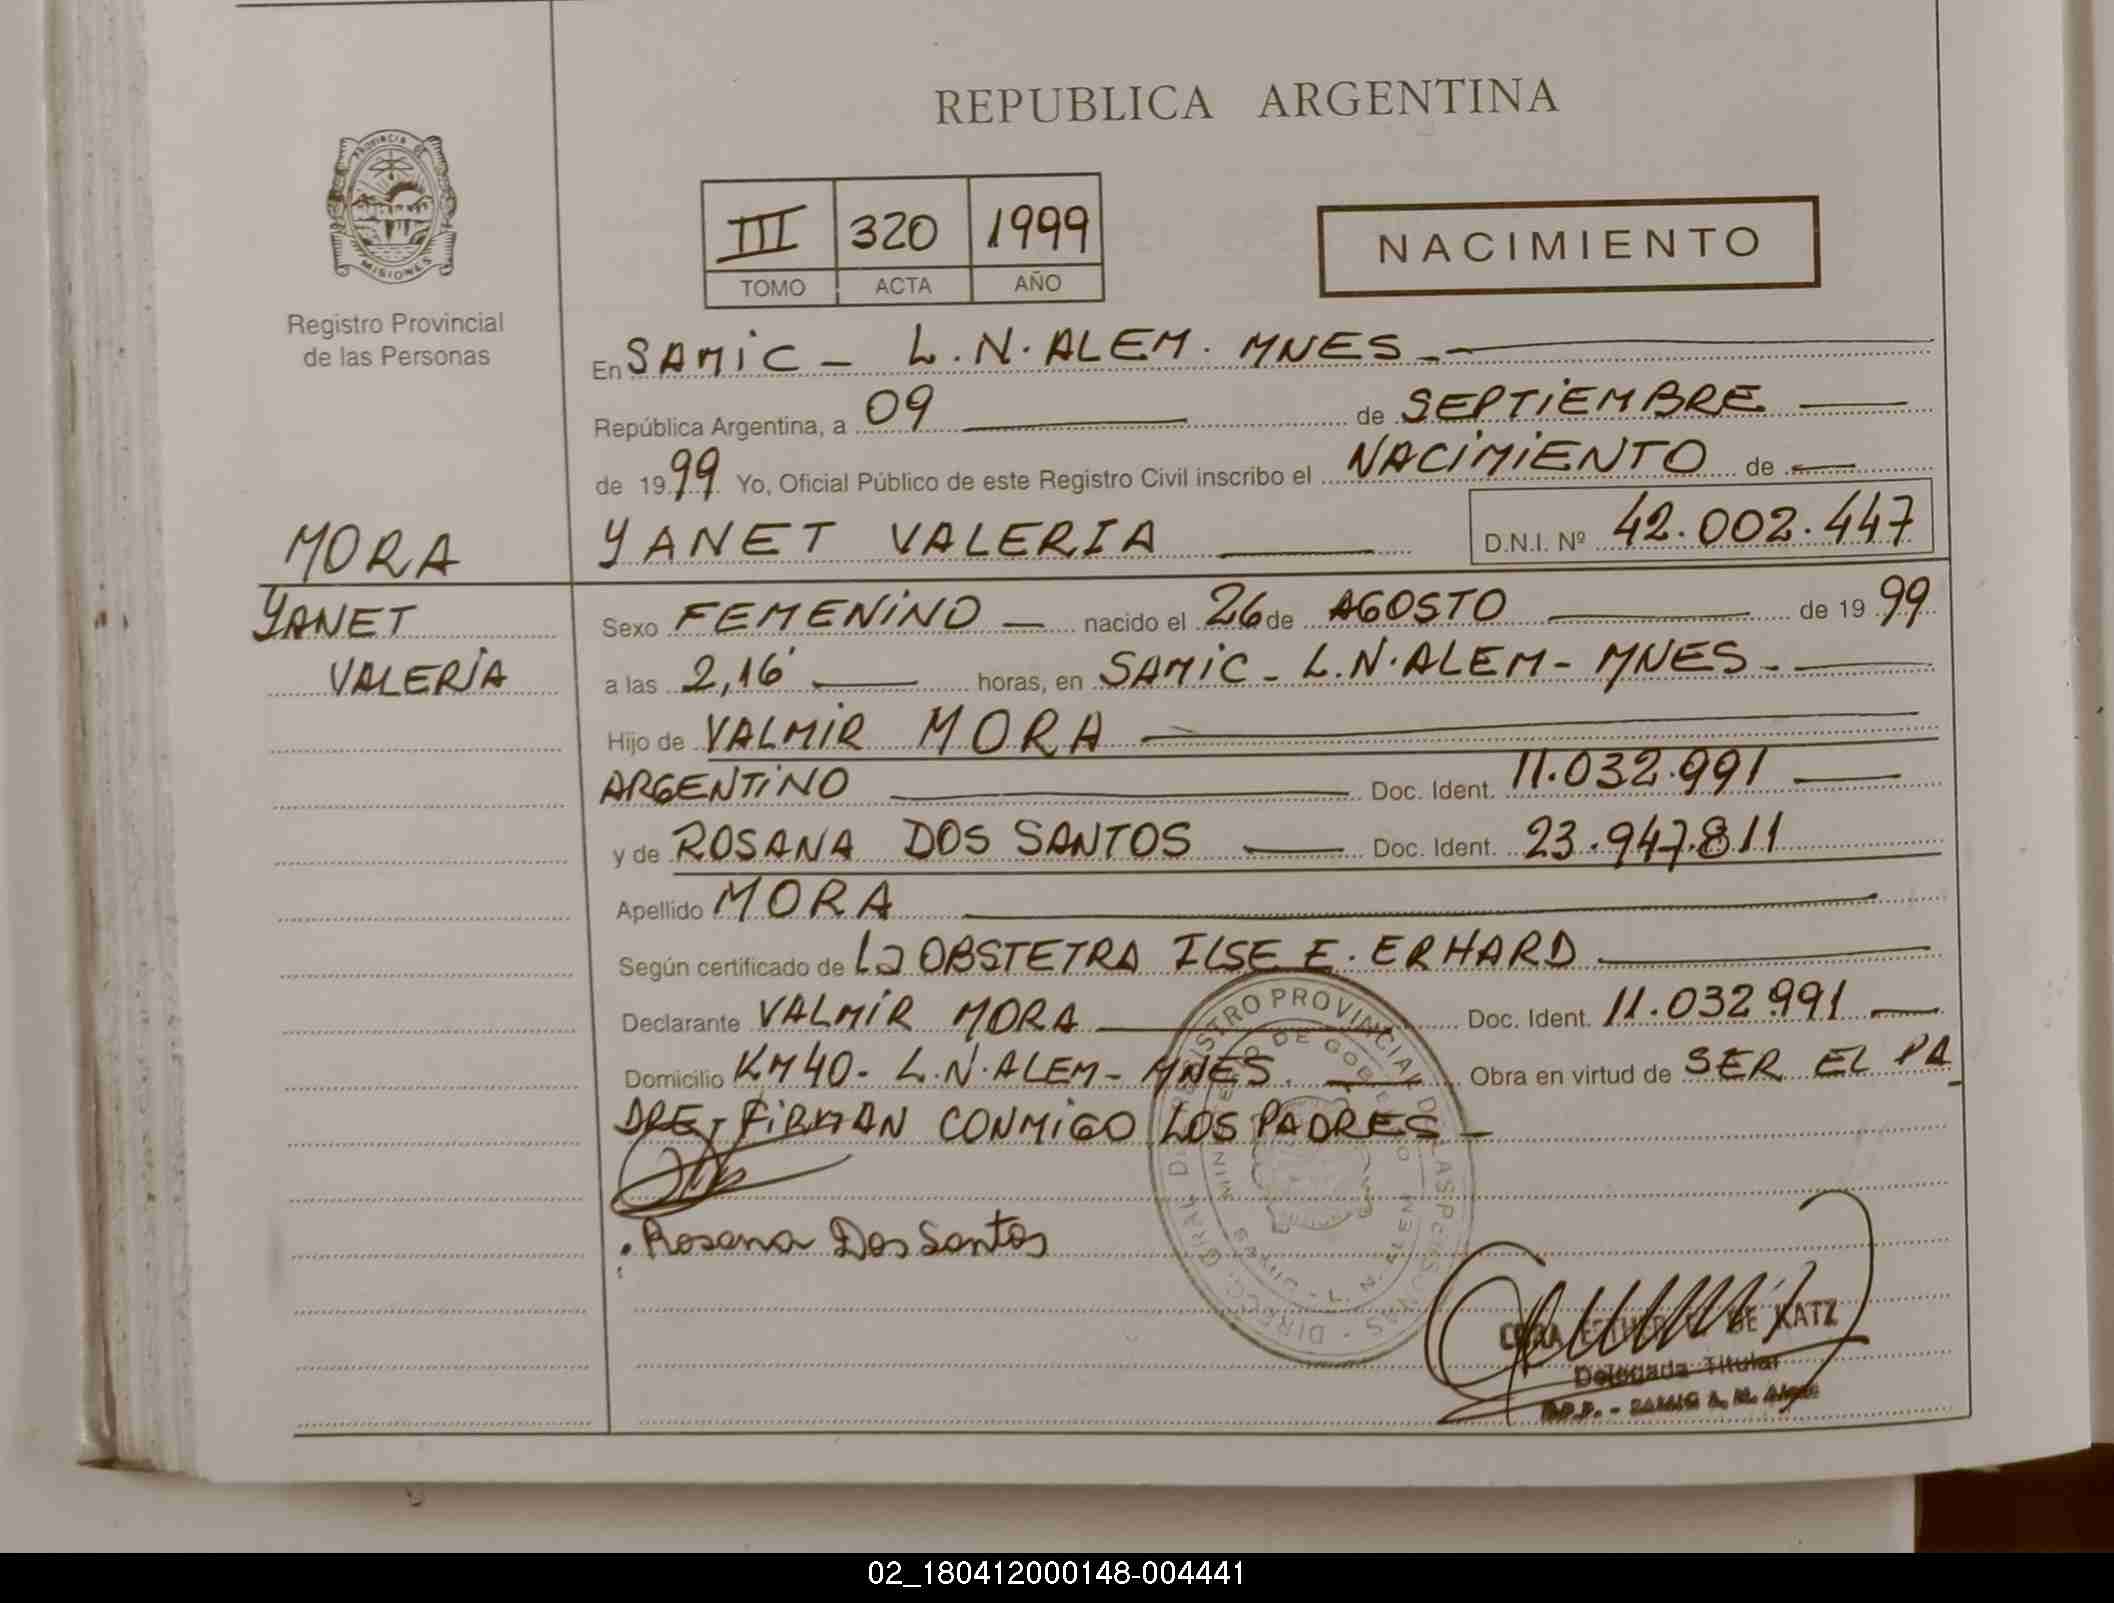 REPUBLICA ARGENTINA
PROVINCIA DE
MISIONES
Registro Provincial
de las Personas
III 320 1999
TOMO ACTA AÑO
NACIMIENTO
En SAMIC - L.N. ALEM. MNES.-
República Argentina, a 09 de SEPTIEMBRE
de 1999 Yo, Oficial Público de este Registro Civil inscribo el NACIMIENTO de
YANET VALERIA D.N.I. Nº 42.002.447
MORA
YANET
VALERIA
Sexo FEMENINO nacido el 26 de AGOSTO de 1999
a las 2,16' horas, en SAMIC - L.N. ALEM - MNES -
Hijo de VALMIR MORA
ARGENTINO Doc. Ident. 11.032.991
y de ROSANA DOS SANTOS Doc. Ident. 23.947.811
Apellido MORA
Según certificado de La OBSTETRA ILSE E. ERHARD
Declarante VALMIR MORA Doc. Ident. 11.032.991
Domicilio KM 40 - L.N. ALEM - MNES. Obra en virtud de SER EL PA
DRE, FIRMAN CONMIGO LOS PADRES -
Rosana Dos Santos
REGISTRO PROVINCIAL DE LAS PERSONAS - DIRECC. GRAL.
MINISTERIO DE GOBIERNO
L. N. ALEM MNES
ESTHER DE KATZ
Delegada Titular
R.P.P. - SAMIC L. N. Alem
02_180412000148-004441